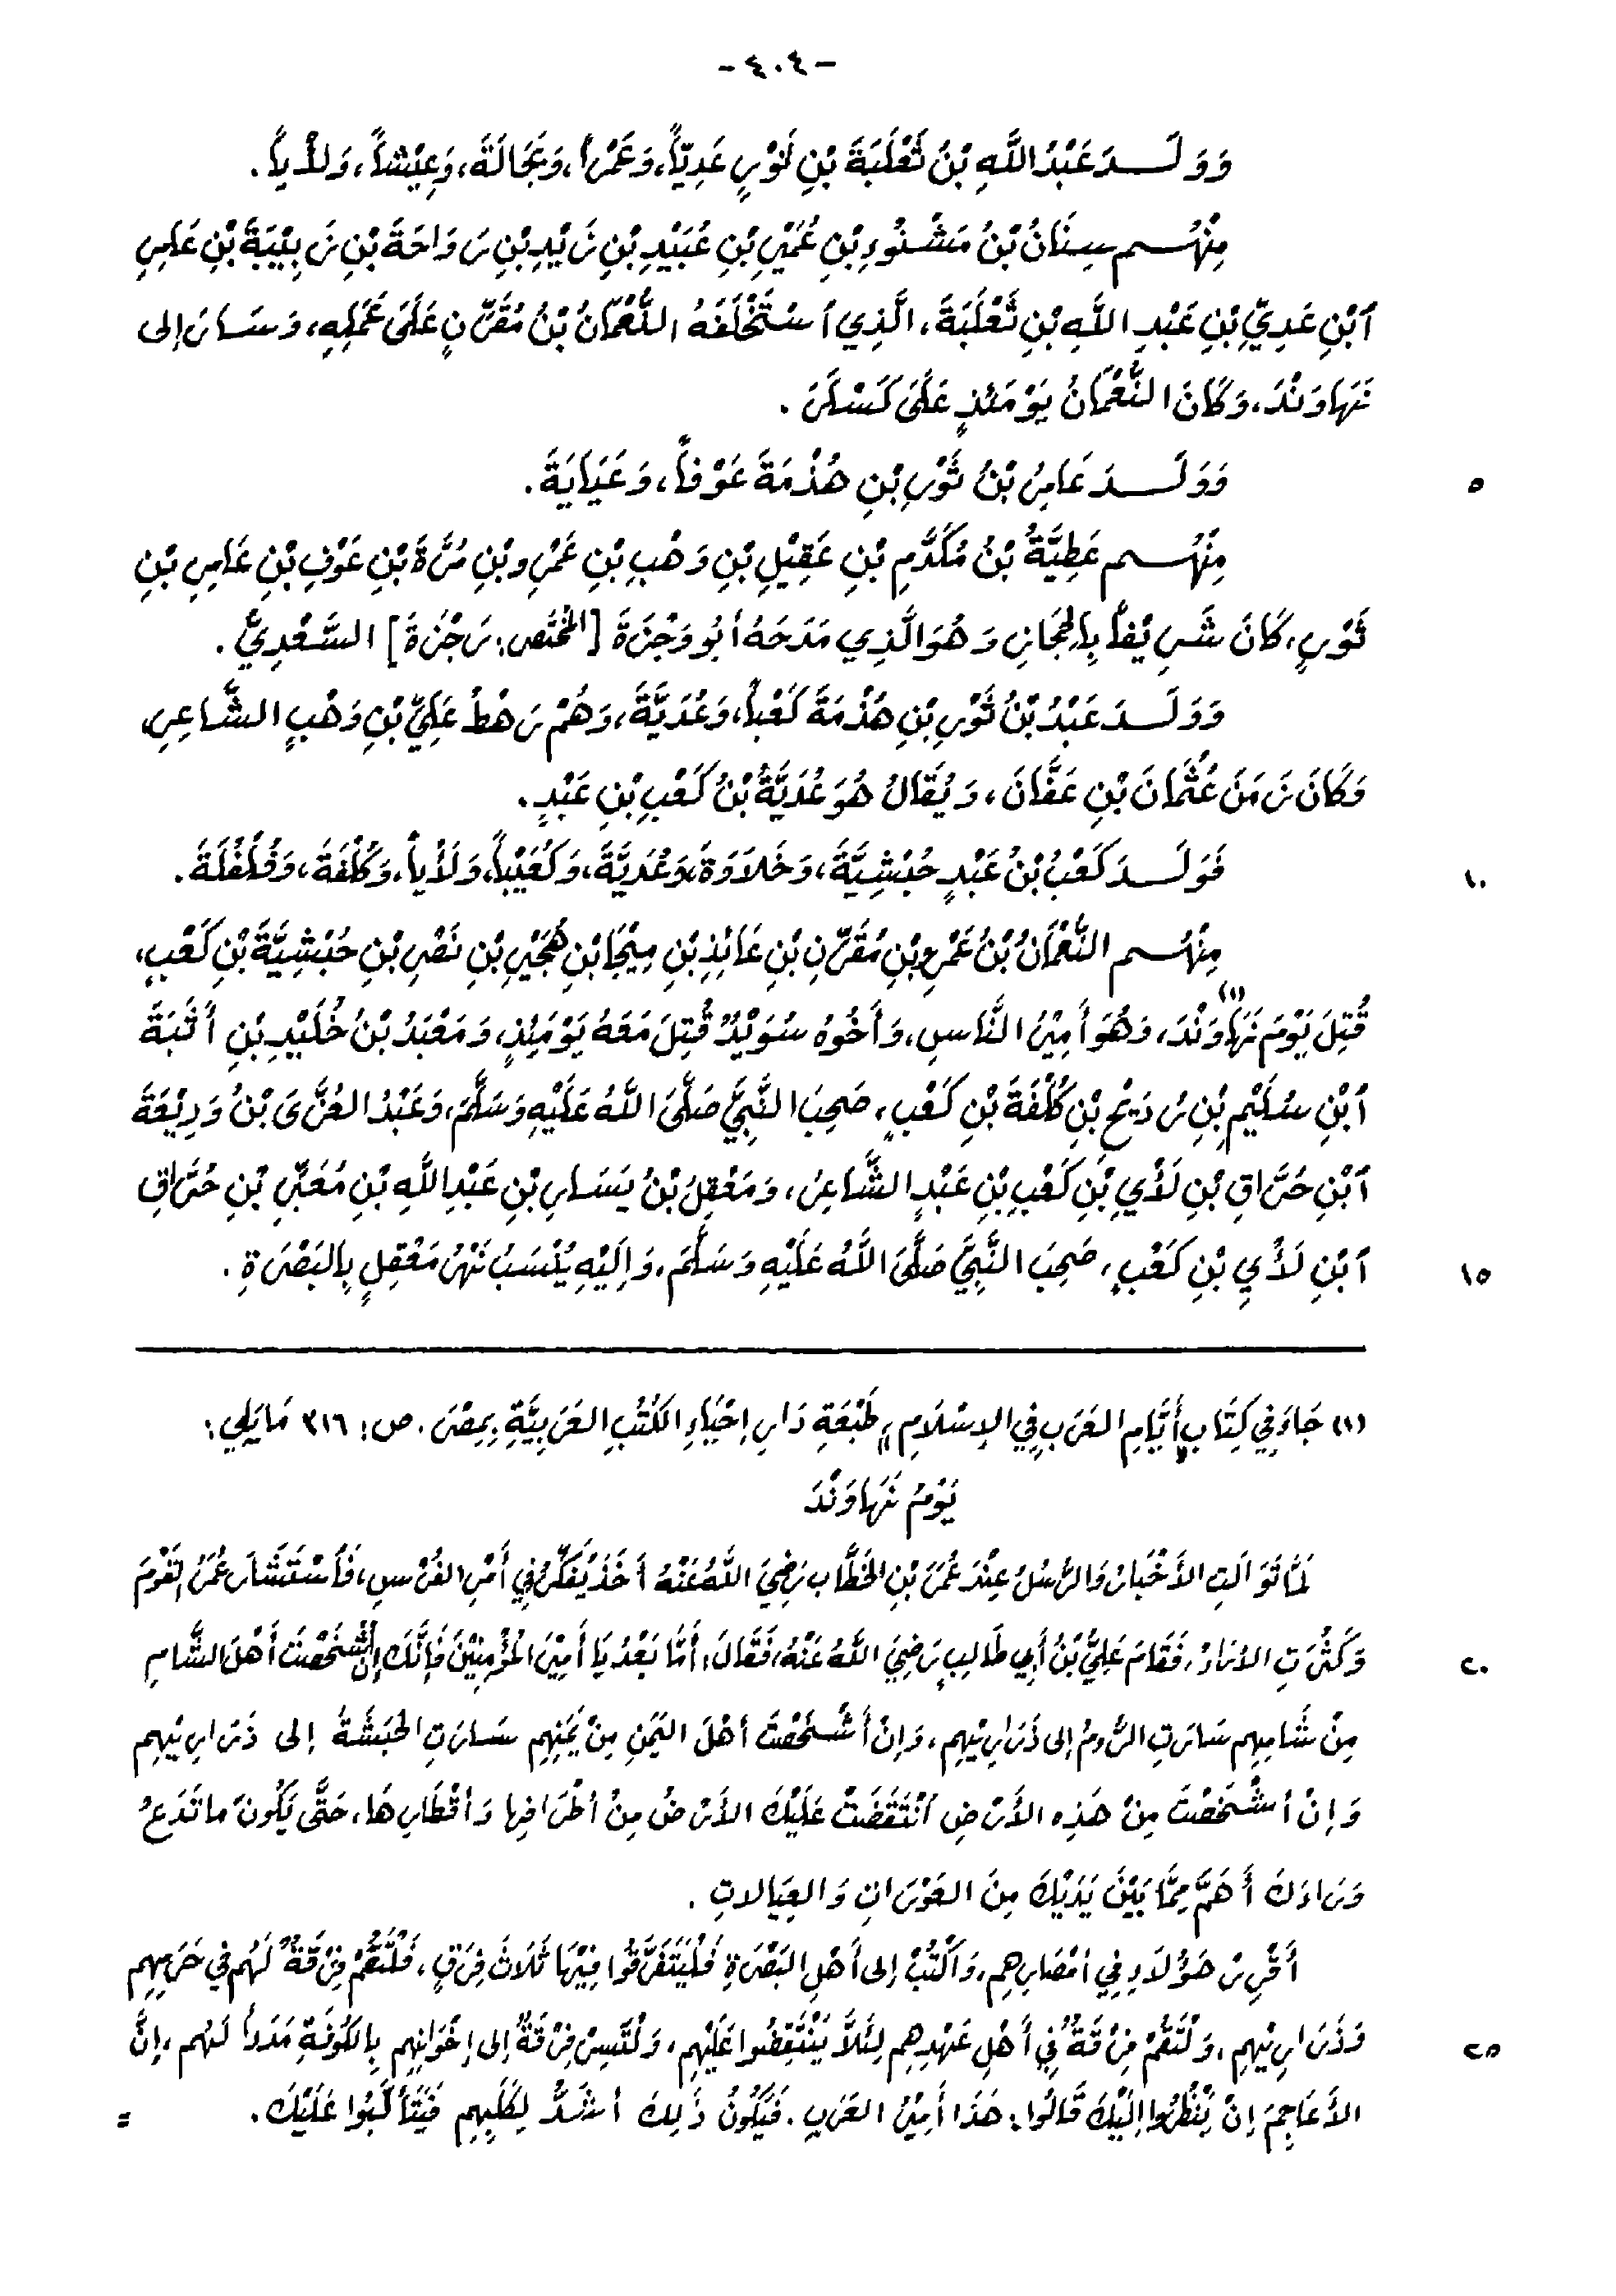 - ٤٠٤ -
وَوَلَدَ عَبْدُ اللَّهِ بْنُ ثَعْلَبَةَ بْنِ ثَوْرٍ عَدِيّاً، وَعَمْراً، وَبَجَالَةَ، وَعِيْشاً، وَلأْياً.
مِنْهُم سِنَانُ بْنُ مَشْنُوءِ بْنِ عُمَيْرِ بْنِ عُبَيْدِ بْنِ زَيْدِ بْنِ رَوَاحَةَ بْنِ زَبِيْبَةَ بْنِ عَامِرِ
ٱبْنِ عَدِيِّ بْنِ عَبْدِ اللَّهِ بْنِ ثَعْلَبَةَ، الَّذِي ٱسْتَخْلَفَهُ النُّعْمَانُ بْنُ مُقَرِّنٍ عَلَى عَمَلِهِ، وَسَارَ إلى
نَهَاوَنْدَ، وَكَانَ النُّعْمَانُ يَوْمَئذٍ عَلَى كَسْكَرَ.
٥
وَوَلَدَ عَامِرُ بْنُ ثَوْرِ بْنِ هُذْمَةَ عَوْفاً، وَعَيَايَةَ.
مِنْهُم عَطِيَّةُ بْنُ مُكَدَّمِ بْنِ عَقِيْلِ بْنِ وَهْبِ بْنِ عَمْرِو بْنِ مُرَّةَ بْنِ عَوْفِ بْنِ عَامِرِ بْنِ
ثَوْرٍ، كَانَ شَرِيْفاً بِالحِجَازِ وَهُوَ الَّذِي مَدَحَهُ أبُو وَجْزَةَ [المُخْتَصَر: رَجْزَةَ] السَّعْدِيُّ.
وَوَلَدَ عَبْدُ بْنُ ثَوْرِ بْنِ هَذْمَةَ كَعْباً، وَعُدَيَّةَ، وَهُمْ رَهْطُ عَلِيِّ بْنِ وَهْبٍ الشَّاعِرِ،
وَكَانَ زَمَنَ عُثْمَانَ بْنِ عَفَّانَ، وَيُقَالُ هُوَ عُدَيَّةُ بْنُ كَعْبِ بْنِ عَبْدٍ.
١٠
فَوَلَدَ كَعْبُ بْنُ عَبْدٍ حُبْشِيَّةَ، وَخَلاَوَةَ، وَعُدَيَّةَ، وَكُعَيْباً، وَلَأْياً، وَكُلْفَةَ، وَفُلْفُلَةَ.
مِنْهُم النُّعْمَانُ بْنُ عَمْرِو بْنِ مُقَرِّنِ بْنِ عَائِذِ بْنِ مِيْجَا بْنِ هُجَيْرِ بْنِ نَصْرِ بْنِ حُبْشِيَّةَ بْنِ كَعْبٍ،
قُتِلَ يَوْمَ نَهَاوَنْدَ(١)، وَهُوَ أمِيْرُ النَّاسِ، وَأَخُوهُ سُوَيْدٌ قُتِلَ مَعَهُ يَوْمَئِذٍ، وَمَعْبَدُ بْنُ خُلَيْدِ بْنِ أَثْبَةَ
ٱبْنِ سُلَيْمِ بْنِ رُدَيْحِ بْنِ كُلْفَةَ بْنِ كَعْبٍ، صَحِبَ النَّبِيَّ صَلَّى اللَّهُ عَلَيْهِ وَسَلَّمَ، وَعَبْدُ العُزَّى بْنُ وَدِيْعَةَ
ٱبْنِ حُرَّاقِ بْنِ لَأْيِ بْنِ كَعْبِ بْنِ عَبْدٍ الشَّاعِرُ، وَمَعْقِلُ بْنُ يَسَارِ بْنِ عَبْدِ اللَّهِ بْنِ مُعَبِّرِ بْنِ حُرَّاقِ
١٥
ٱبْنِ لَأْيِ بْنِ كَعْبٍ، صَحِبَ النَّبِيَّ صَلَّى اللَّهُ عَلَيْهِ وَسَلَّمَ، وَإلَيْهِ يُنْسَبُ نَهْرُ مَعْقِلٍ بِالبَصْرَةِ.
(١) جَاءَ فِي كِتَابِ «أيَّامِ العَرَبِ فِي الإسْلَامِ» طَبْعَةِ دَارِ إحْيَاءِ الكُتُبِ العَرَبِيَّةِ بِمِصْرَ. ص: ٣١٦ مَا يَلِي:
يَوْمُ نَهَاوَنْدَ
لَمَّا تَوَالَتِ الأَخْبَارُ وَالرُّسُلُ عِنْدَ عُمَرَ بْنِ الخَطَّابِ رَضِيَ اللَّهُ عَنْهُ أَخَذَ يُفَكِّرُ فِي أَمْرِ الفُرْسِ، فَٱسْتَشَارَ عُمَرُ القَوْمَ
٢٠
وَكَثُرَتِ الآرَاءُ، فَقَامَ عَلِيُّ بْنُ أَبِي طَالِبٍ رَضِيَ اللَّهُ عَنْهُ، فَقَالَ: أَمَّا بَعْدُ يَا أَمِيْرَ المُؤْمِنِيْنَ فَإنَّكَ إنْ أَشْخَصْتَ أَهْلَ الشَّامِ
مِنْ شَامِهِم سَارَتِ الرُّومُ إلى ذَرَارِيْهِم، وَإنْ أَشْخَصْتَ أهْلَ اليَمَنِ مِنْ يَمَنِهِم سَارَتِ الحَبَشَةُ إلى ذَرَارِيْهِم
وَإنْ أَشْخَصْتَ مِنْ هَذِهِ الأَرْضِ ٱنْتَقَضَتْ عَلَيْكَ الأَرْضُ مِنْ أطْرَافِهَا وَأقْطَارِهَا، حَتَّى يَكُونَ مَا تَدَعُ
وَرَاءَكَ أَهَمَّ مِمَّا بَيْنَ يَدَيْكَ مِنَ العَوْرَاتِ وَالعِيَالاتِ.
أَقْرِرْ هَؤُلاَءِ فِي أمْصَارِهِم، وَٱكْتُبْ إلى أَهْلِ البَصْرَةِ فَلْيَتَفَرَّقُوا فِيْهَا ثَلَاثَ فِرَقٍ، فَلْتَقُمْ فِرْقَةٌ لَهُم فِي حَرَمِهِم
٢٥
وَذَرَارِيْهِم، وَلْتَقُمْ فِرْقَةٌ فِي أَهْلِ عَهْدِهِم لِئَلاَّ يَنْتَقِضُوا عَلَيْهِم، وَلْتَسِرْ فِرْقَةٌ إلى إخْوَانِهِم بِالكُوفَةِ مَدَداً لَهُم، إنَّ
الأَعَاجِمَ إنْ يَنْظُرُوا إلَيْكَ قَالُوا: هَذَا أَمِيْرُ العَرَبِ. فَيَكُونُ ذَلِكَ أشَدَّ لِكَلَبِهِم فَيَتَأَلَّبُوا عَلَيْكَ. =